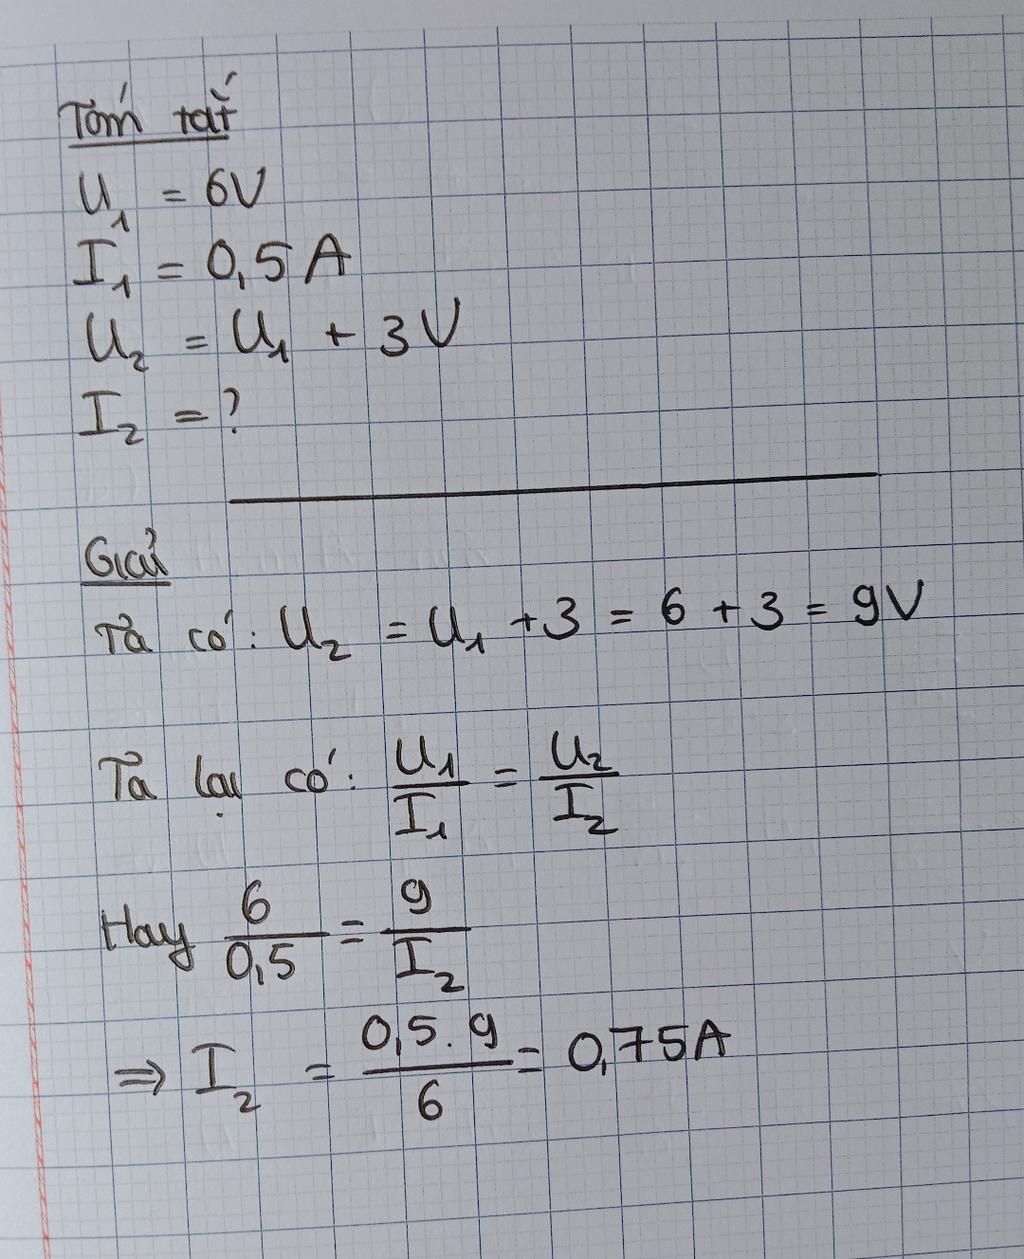 Tóm tắt
U₁ = 6V
I₁ = 0,5 A
U₂ = U₁ + 3V
I₂ = ?
Giải
Ta có: U₂ = U₁ + 3 = 6 + 3 = 9V
Ta lại có: U₁/I₁ = U₂/I₂
Hay 6/0,5 = 9/I₂
⇒ I₂ = 0,5 . 9/6 = 0,75A